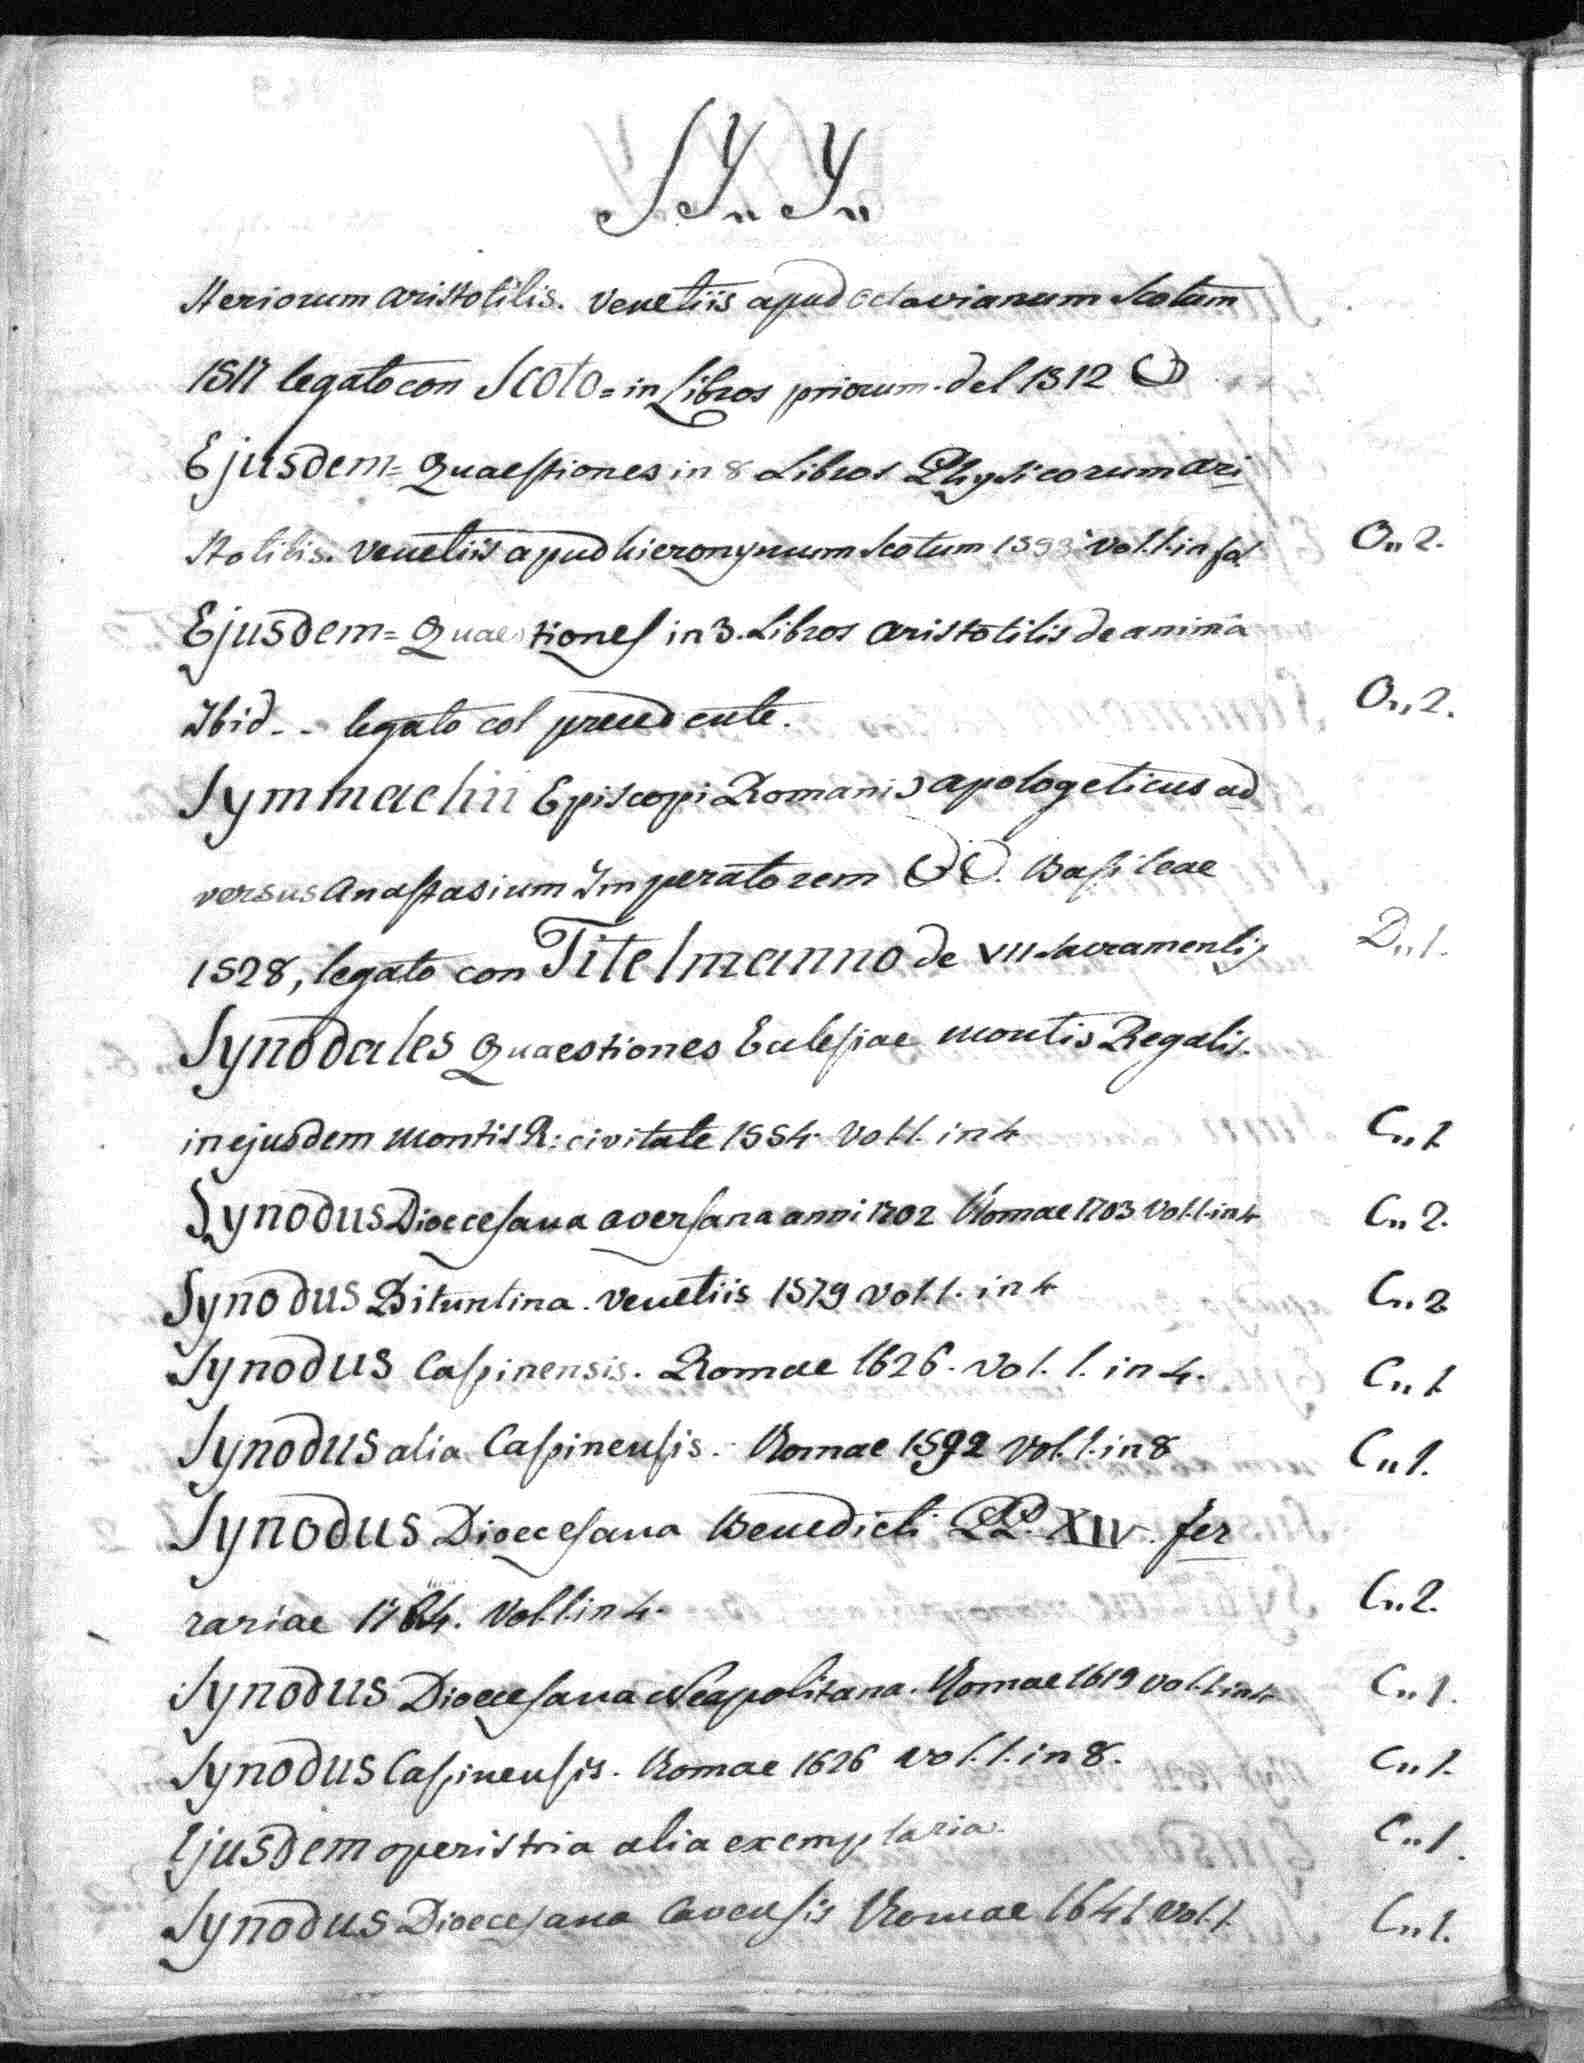 SY„ Y„
steriorum aristotilis. Venetiis apud octavianum Scotum
1517 legato con Scoto = in Libros priorum. del 1512
Ejusdem = Quaestiones in 8 Libros Physicorum ari
stotilis. Venetiis apud hieronymum Scotum 1593 Vol. 1. in fol. O„ 2.
Ejusdem = Quaestiones in 3. Libros aristotilis de anima
Ibid. - - legato col precedente. O„ 2.
Symmachii Episcopi Romani apologeticus ad
versus Anastasium Imperatorem. Basileae
1528, legato con Titelmanno de VII Sacramentis D„ 1.
Synodales Quaestiones Eclesiae Montis Regalis.
in ejusdem Montis R: civitate 1554. Vol. 1. in 4 C„ 1
Synodus Dioecesana aversana anni 1702 Romae 1703 Vol. 1. in 4 C„ 2.
Synodus Bituntina. Venetiis 1579 Vol. 1. in 4 C„ 2
Synodus Cassinensis. Romae 1626. Vol. 1. in 4. C„ 1
Synodus alia Cassinensis. Romae 1592 Vol. 1. in 8 C„ 1.
Synodus Dioecesana Benedicti PP. XIV. fer
rariae 1764. Vol. 1. in 4. C„ 2.
Synodus Dioecesana Neapolitana. Romae 1619 Vol. 1. in 4 C„ 1.
Synodus Cassinensis. Romae 1626 vol. 1. in 8. C„ 1.
Ejusdem operis tria alia exemplaria. C„ 1.
Synodus Dioecesana Cavensis Romae 1641 Vol. 1. C„ 1.